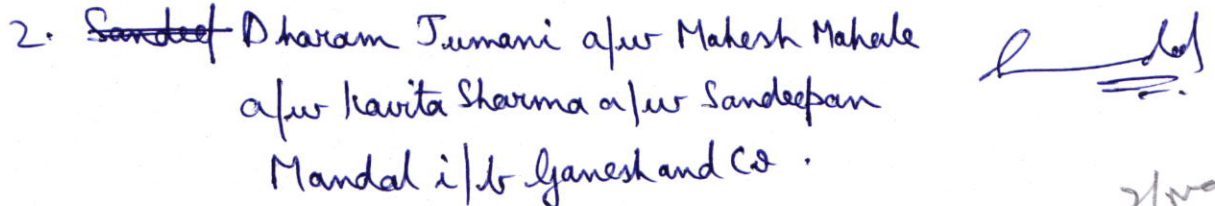 2. Sandeef Dharam Jumani a/w Mahesh Mahale
a/w Kavita Sharma a/w Sandeepan
Mandal i/b Ganesh and Co.